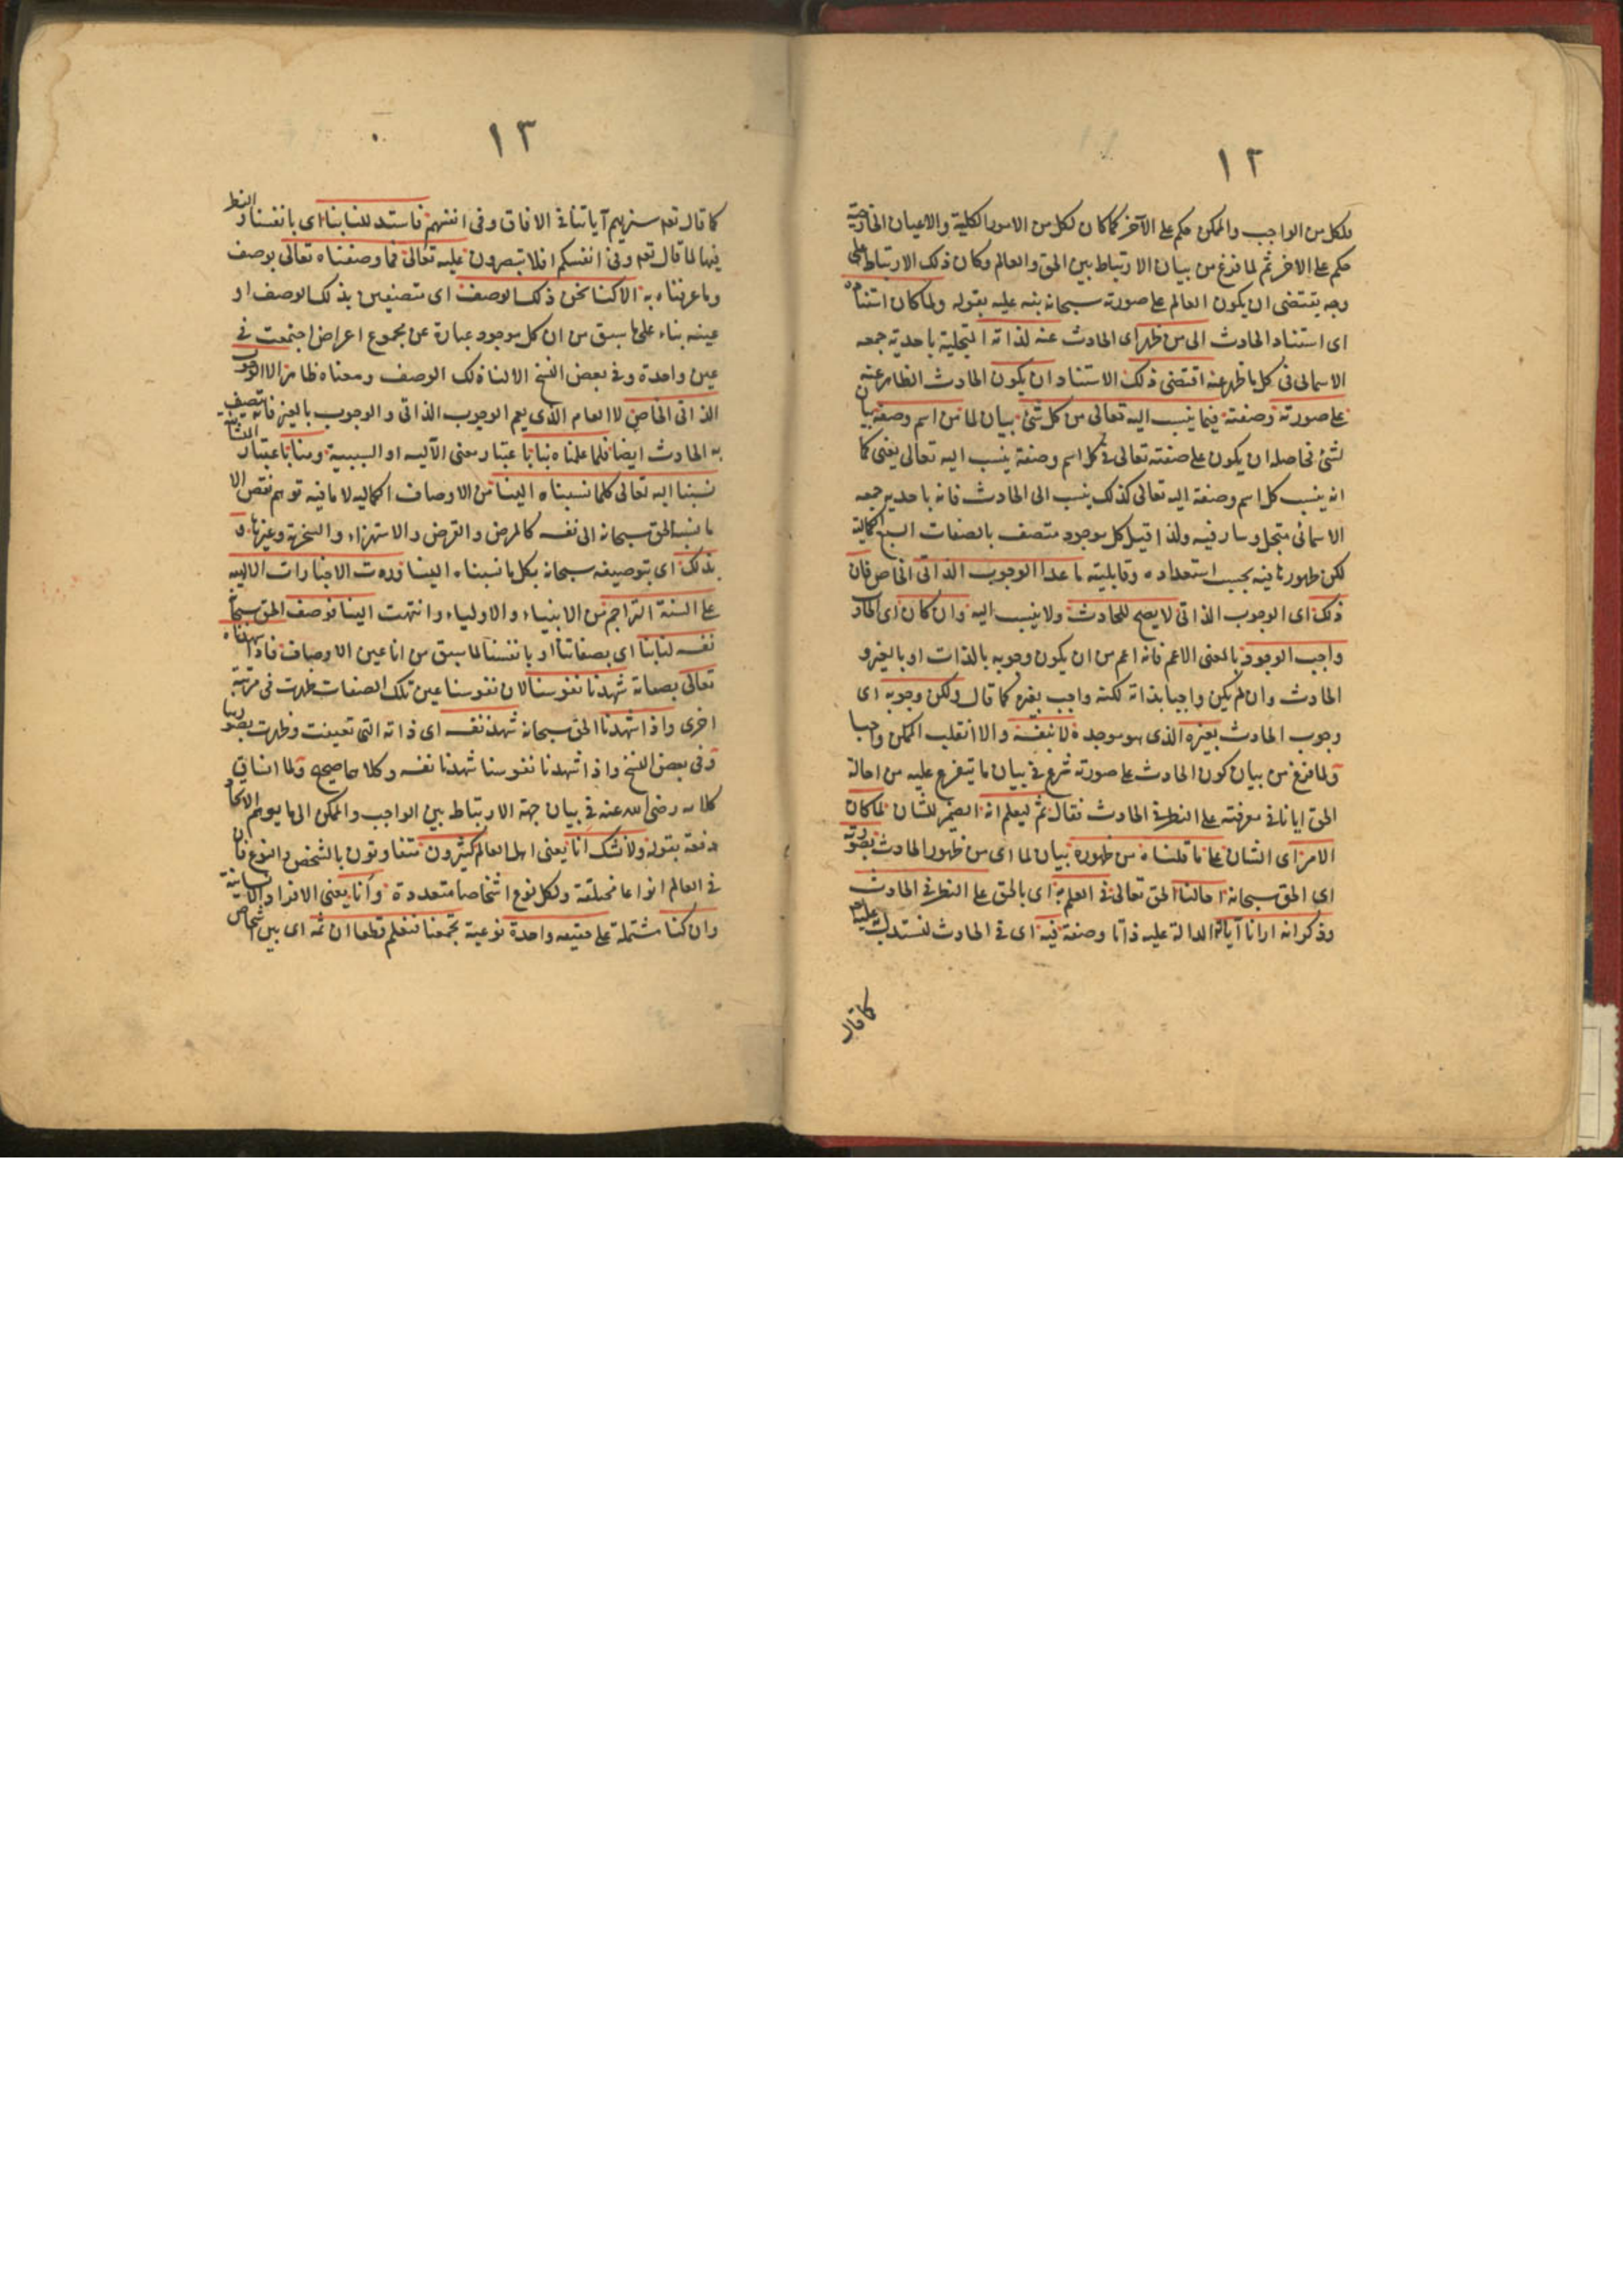 ١٢
فلكل من الواجب والممكن حكم على الآخر كما كان لكل من الامور الكلية والاعيان الخارجية
حكم على الاخر ثم لما فرغ من بيان الارتباط بين الحق والعالم وكان ذلك الارتباط على
وجه يقتضى ان يكون العالم على صورته سبحانه نبه عليه بقوله ولما كان استناده
اى استناد الحادث الى من ظهر اى الحادث عنه لذاته المتجلية باحدية جمعه
الاسمائى فى كل ما ظهر عنه اقتضى ذلك الاستناد ان يكون الحادث الظاهر عنه
على صورته وصفته فيما ينسب اليه تعالى من كل شئ بيان لما من اسم وصفة بيان
لشئ فحاصله ان يكون على صفته تعالى فى كل اسم وصفة ينسب اليه تعالى يعنى كما
انه ينسب كل اسم وصفة اليه تعالى كذلك ينسب الى الحادث فانه باحدية جمعه
الاسمائى متجل وسار فيه ولذا قيل كل موجود متصف بالصفات السبع الكمالية
لكن ظهورها فيه بحسب استعداده وقابليته ما عدا الوجوب الذاتى الخاص فان
ذلك اى الوجوب الذاتى لا يصح للحادث ولا ينسب اليه وان كان اى الحادث
واجب الوجود بالمعنى الاعم فانه اعم من ان يكون وجوبه بالذات او بالغير و
الحادث وان لم يكن واجبا بذاته لكنه واجب بغيره كما قال ولكن وجوبه اى
وجوب الحادث بغيره الذى هو موجده لا بنفسه والا انقلب الممكن واجبا
ولما فرغ من بيان كون الحادث على صورته شرع فى بيان ما يتفرع عليه من احالة
الحق ايانا فى معرفته على النظر فى الحادث فقال ثم ليعلم انه الضمير للشان لما كان
الامر اى الشان على ما قلناه من ظهوره بيان لما اى من ظهور الحادث بصورته
اى الحق سبحانه احالنا الحق تعالى فى العلم به اى بالحق على النظر فى الحادث
وذكر انه ارانا آياته الدالة عليه ذاتا وصفة فيه اى فى الحادث لنستدل بها عليه
كما قال
١٣
كما قال تعه سنريهم آياتنا فى الافاق وفى انفسهم فاستدللنا بنا اى بانفسنا والنظر
فيها لما قال تعه وفى انفسكم افلا تبصرون عليه تعالى فما وصفناه تعالى بوصف
وما عرفناه به الا كنا نحن ذلك الوصف اى متصفين بذلك الوصف او
عينه بناء على ما سبق من ان كل موجود عبارة عن مجموع اعراض اجتمعت فى
عين واحدة وفى بعض النسخ الا لنا ذلك الوصف ومعناه ظاهر الا الوجوب
الذاتى الخاص لا العام الذى يعم الوجوب الذاتى والوجوب بالغير فانه يتصف
به الحادث ايضا فلما علمناه بنا باعتبار معنى الآلية او السببية ومنا باعتبار النشأ
نسبنا اليه تعالى كلما نسبناه الينا من الاوصاف الكمالية لا ما فيه توهم نقص الا
ما نسبه الحق سبحانه الى نفسه كالمرض والقرض والاستهزاء والسخرية وغيرها و
بذلك اى بتوصيفه سبحانه بكل ما نسبناه الينا وردت الاخبارات الالهية
على السنة التراجم من الانبياء والاولياء وانتهت الينا فوصف الحق سبحانه
نفسه لنا بنا اى بصفاتنا او بانفسنا لما سبق من انا عين الاوصاف فاذا شهدناه
تعالى بصفاته شهدنا نفوسنا لان نفوسنا عين تلك الصفات ظهرت فى مرتبة
اخرى واذا شهدنا الحق سبحانه شهد نفسه اى ذاته التى تعينت وظهرت بصورنا
وفى بعض النسخ واذا شهدنا نفوسنا شهدنا نفسه وكلاهما صحيح ولما انساق
كلامه رضى الله عنه فى بيان جهة الارتباط بين الواجب والممكن الى ما يوهم الاتحاد
دفعه بقوله ولا نشك انا يعنى اهل العالم كثيرون متفاوتون بالشخص والنوع فان
فى العالم انواعا مختلفة ولكل نوع اشخاصا متعددة وانا يعنى الافراد الانسانية
وان كنا مشتملة على حقيقة واحدة نوعية تجمعنا فنعلم قطعا ان ثمه اى بين اشخاص